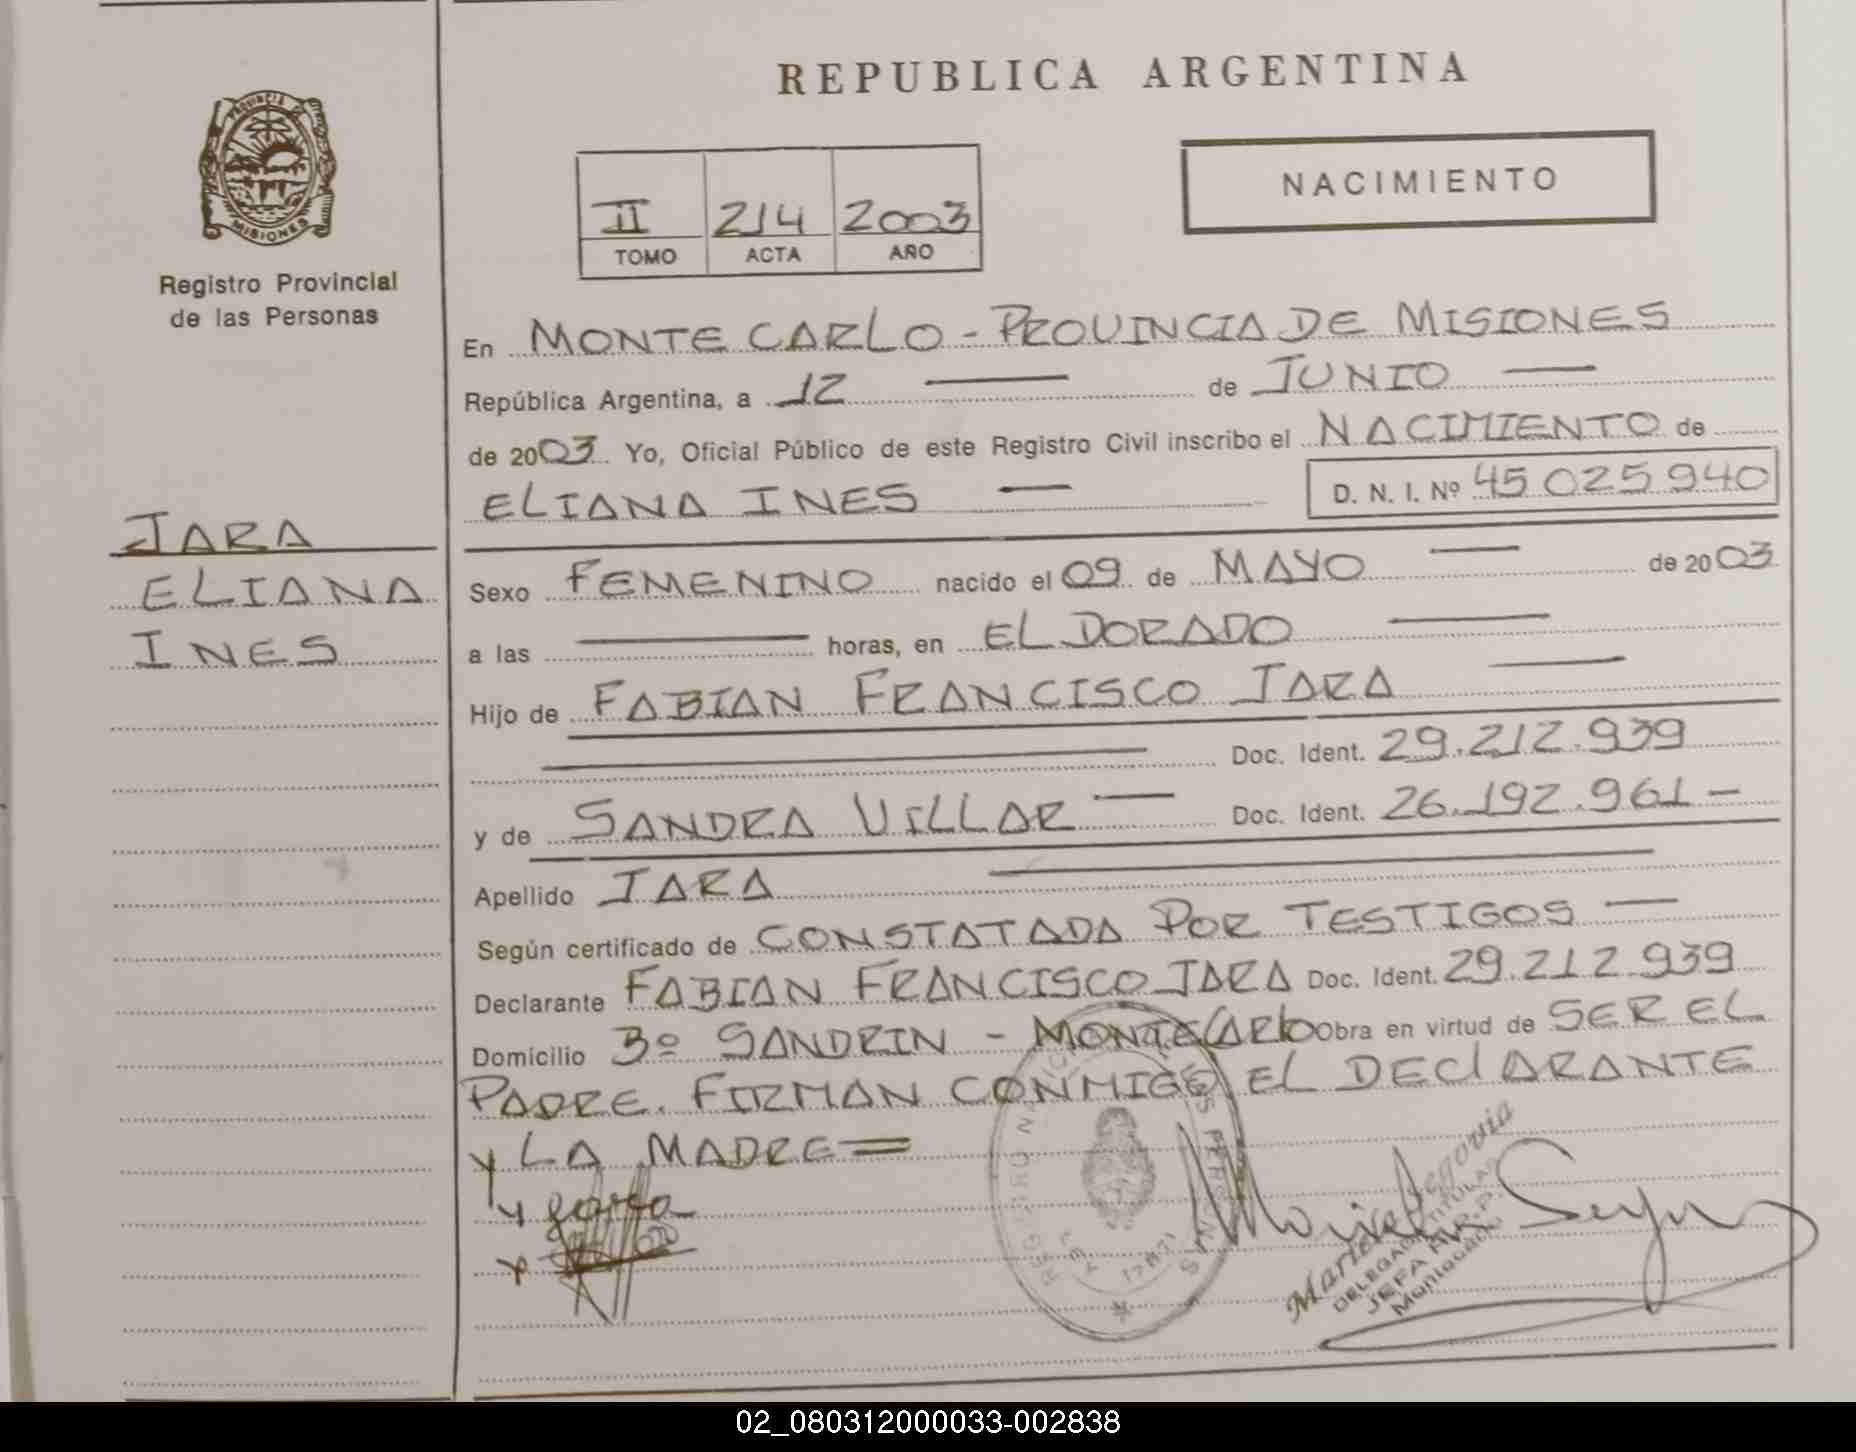 REPUBLICA ARGENTINA
PROVINCIA DE
MISIONES
Registro Provincial
de las Personas
II 214 2003
TOMO ACTA AÑO
NACIMIENTO
En MONTECARLO - PROVINCIA DE MISIONES
República Argentina, a 12 de JUNIO
de 2003 Yo, Oficial Público de este Registro Civil inscribo el NACIMIENTO de
ELIANA INES
D. N. I. Nº 45 025 940
JARA
ELIANA
INES
Sexo FEMENINO nacido el 09 de MAYO de 2003
a las horas, en ELDORADO
Hijo de FABIAN FRANCISCO JARA
Doc. Ident. 29.212.939
y de SANDRA VILLAR Doc. Ident. 26.192.961 -
Apellido JARA
Según certificado de CONSTATADA POR TESTIGOS
Declarante FABIAN FRANCISCO JARA Doc. Ident. 29.212.939
Domicilio Bº SANDRIN - MONTECARLO Obra en virtud de SER EL
PADRE. FIRMAN CONMIGO EL DECLARANTE
Y LA MADRE =
LEY 17671
DELEGADA TITULAR
JEFA
Montecarlo
02_080312000033-002838